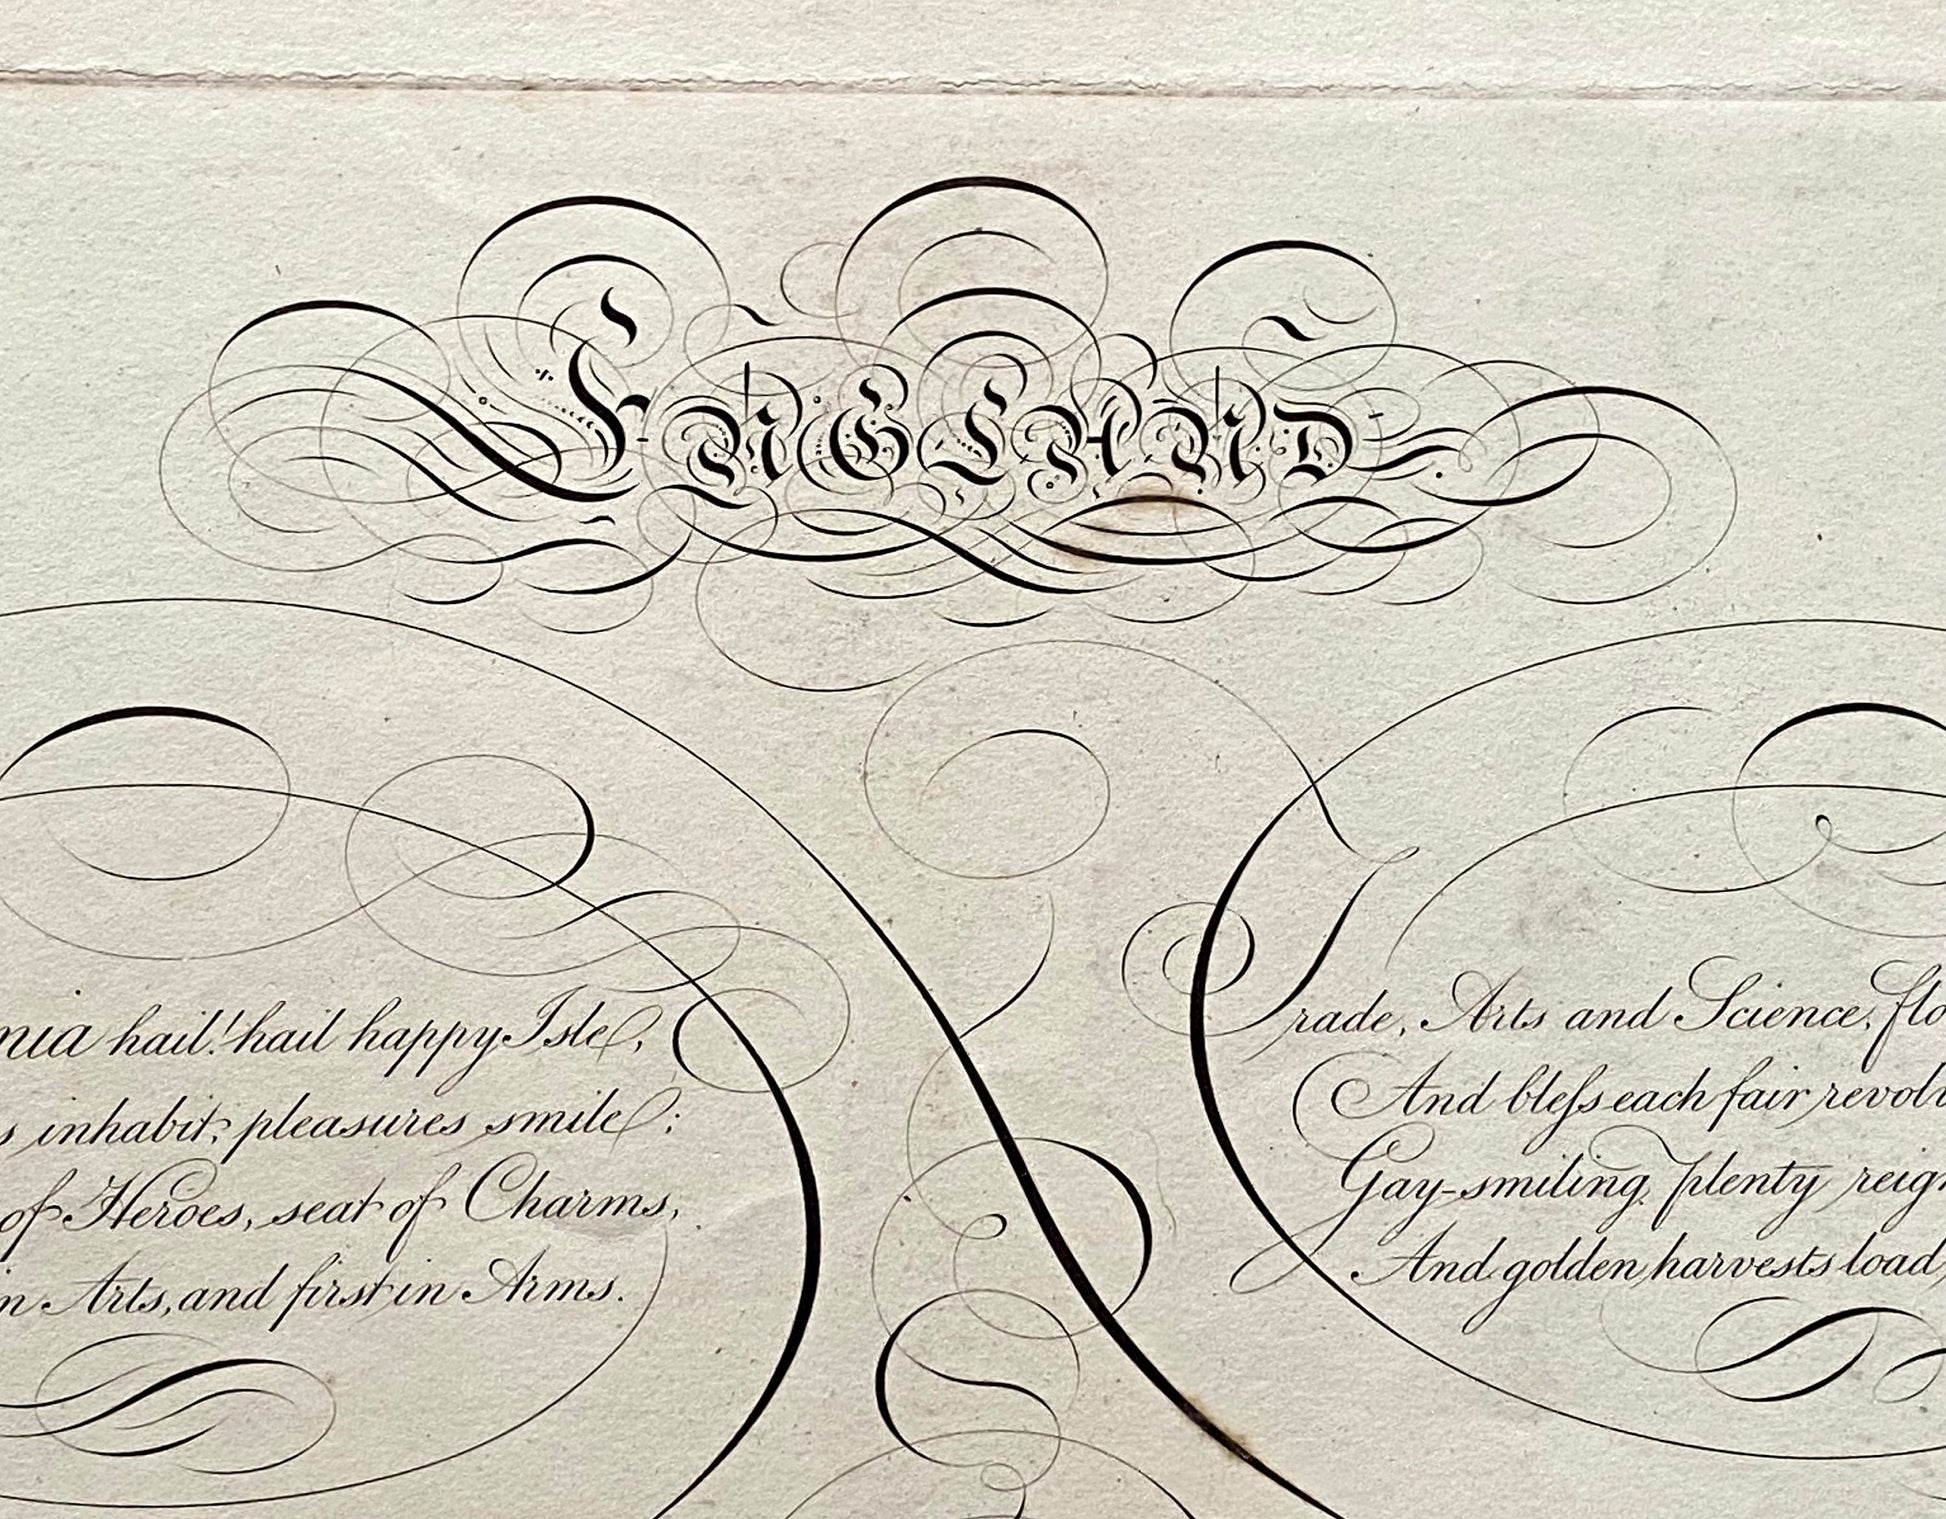 ENGLAND
nia hail! hail happy Isle,
s inhabit; pleasures smile;
of Heroes, seat of Charms,
n Arts, and first in Arms.
Trade, Arts and Science, flo
And bleſs each fair revolv
Gay-smiling plenty reign
And golden harvests load